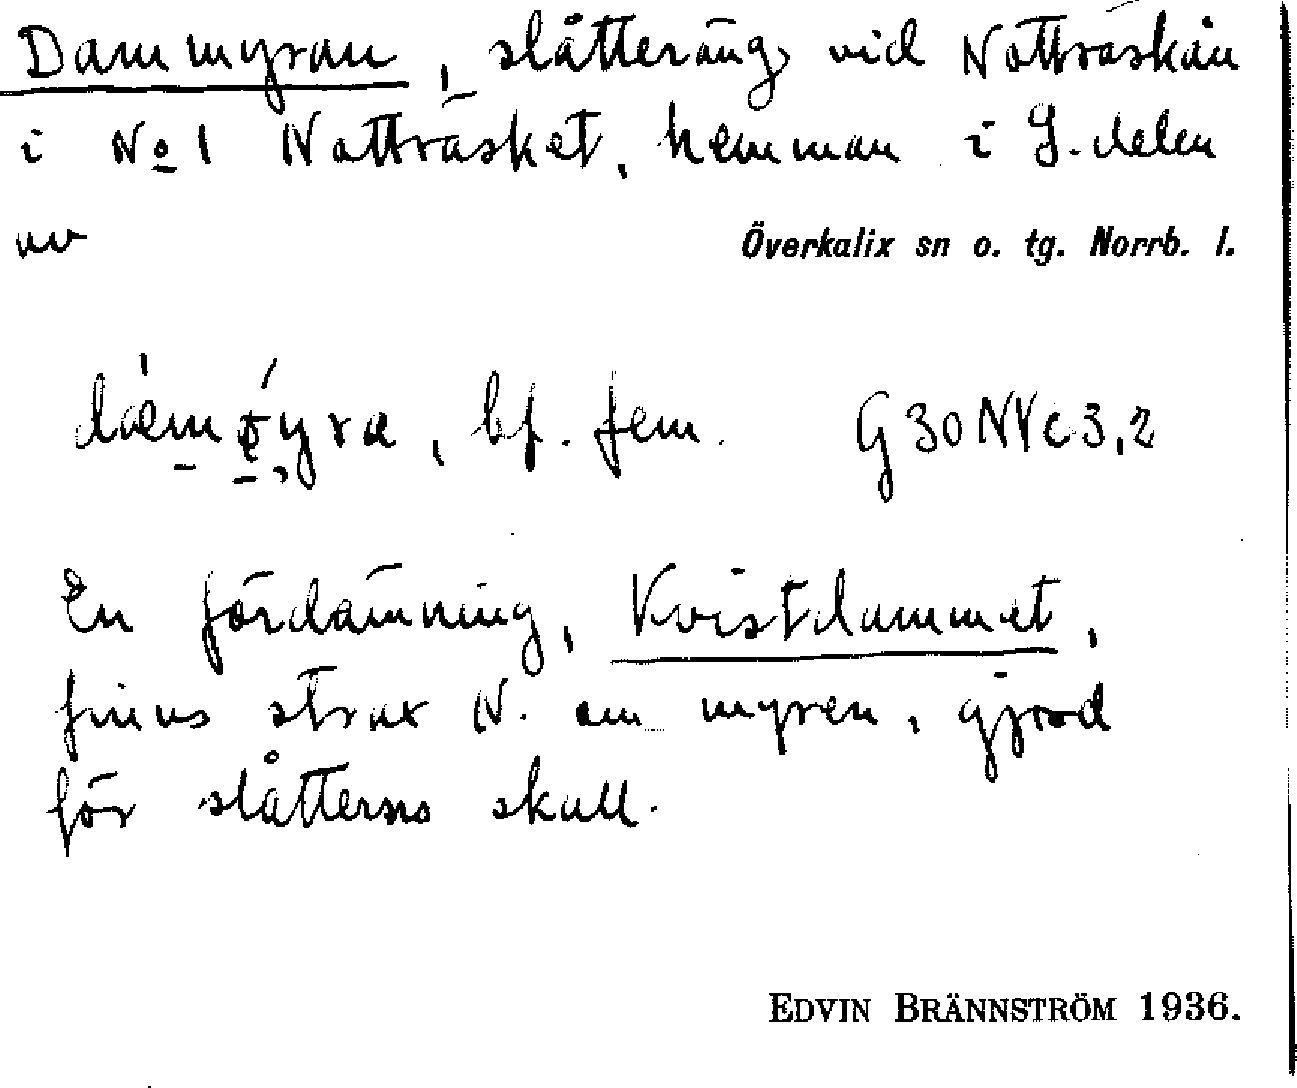 Dammyran, slåtteräng vid Nattraskån
i No 1 Nattrasket, hemman i S. delen
av Överkalix sn o. tg. Norrb. l.
bf. fem. G30NVc3,2
En fördämning, Kvistdammet,
finns strax N. om myren, gjord
för slåtterns skull.
EDVIN BRÄNNSTRÖM 1936.